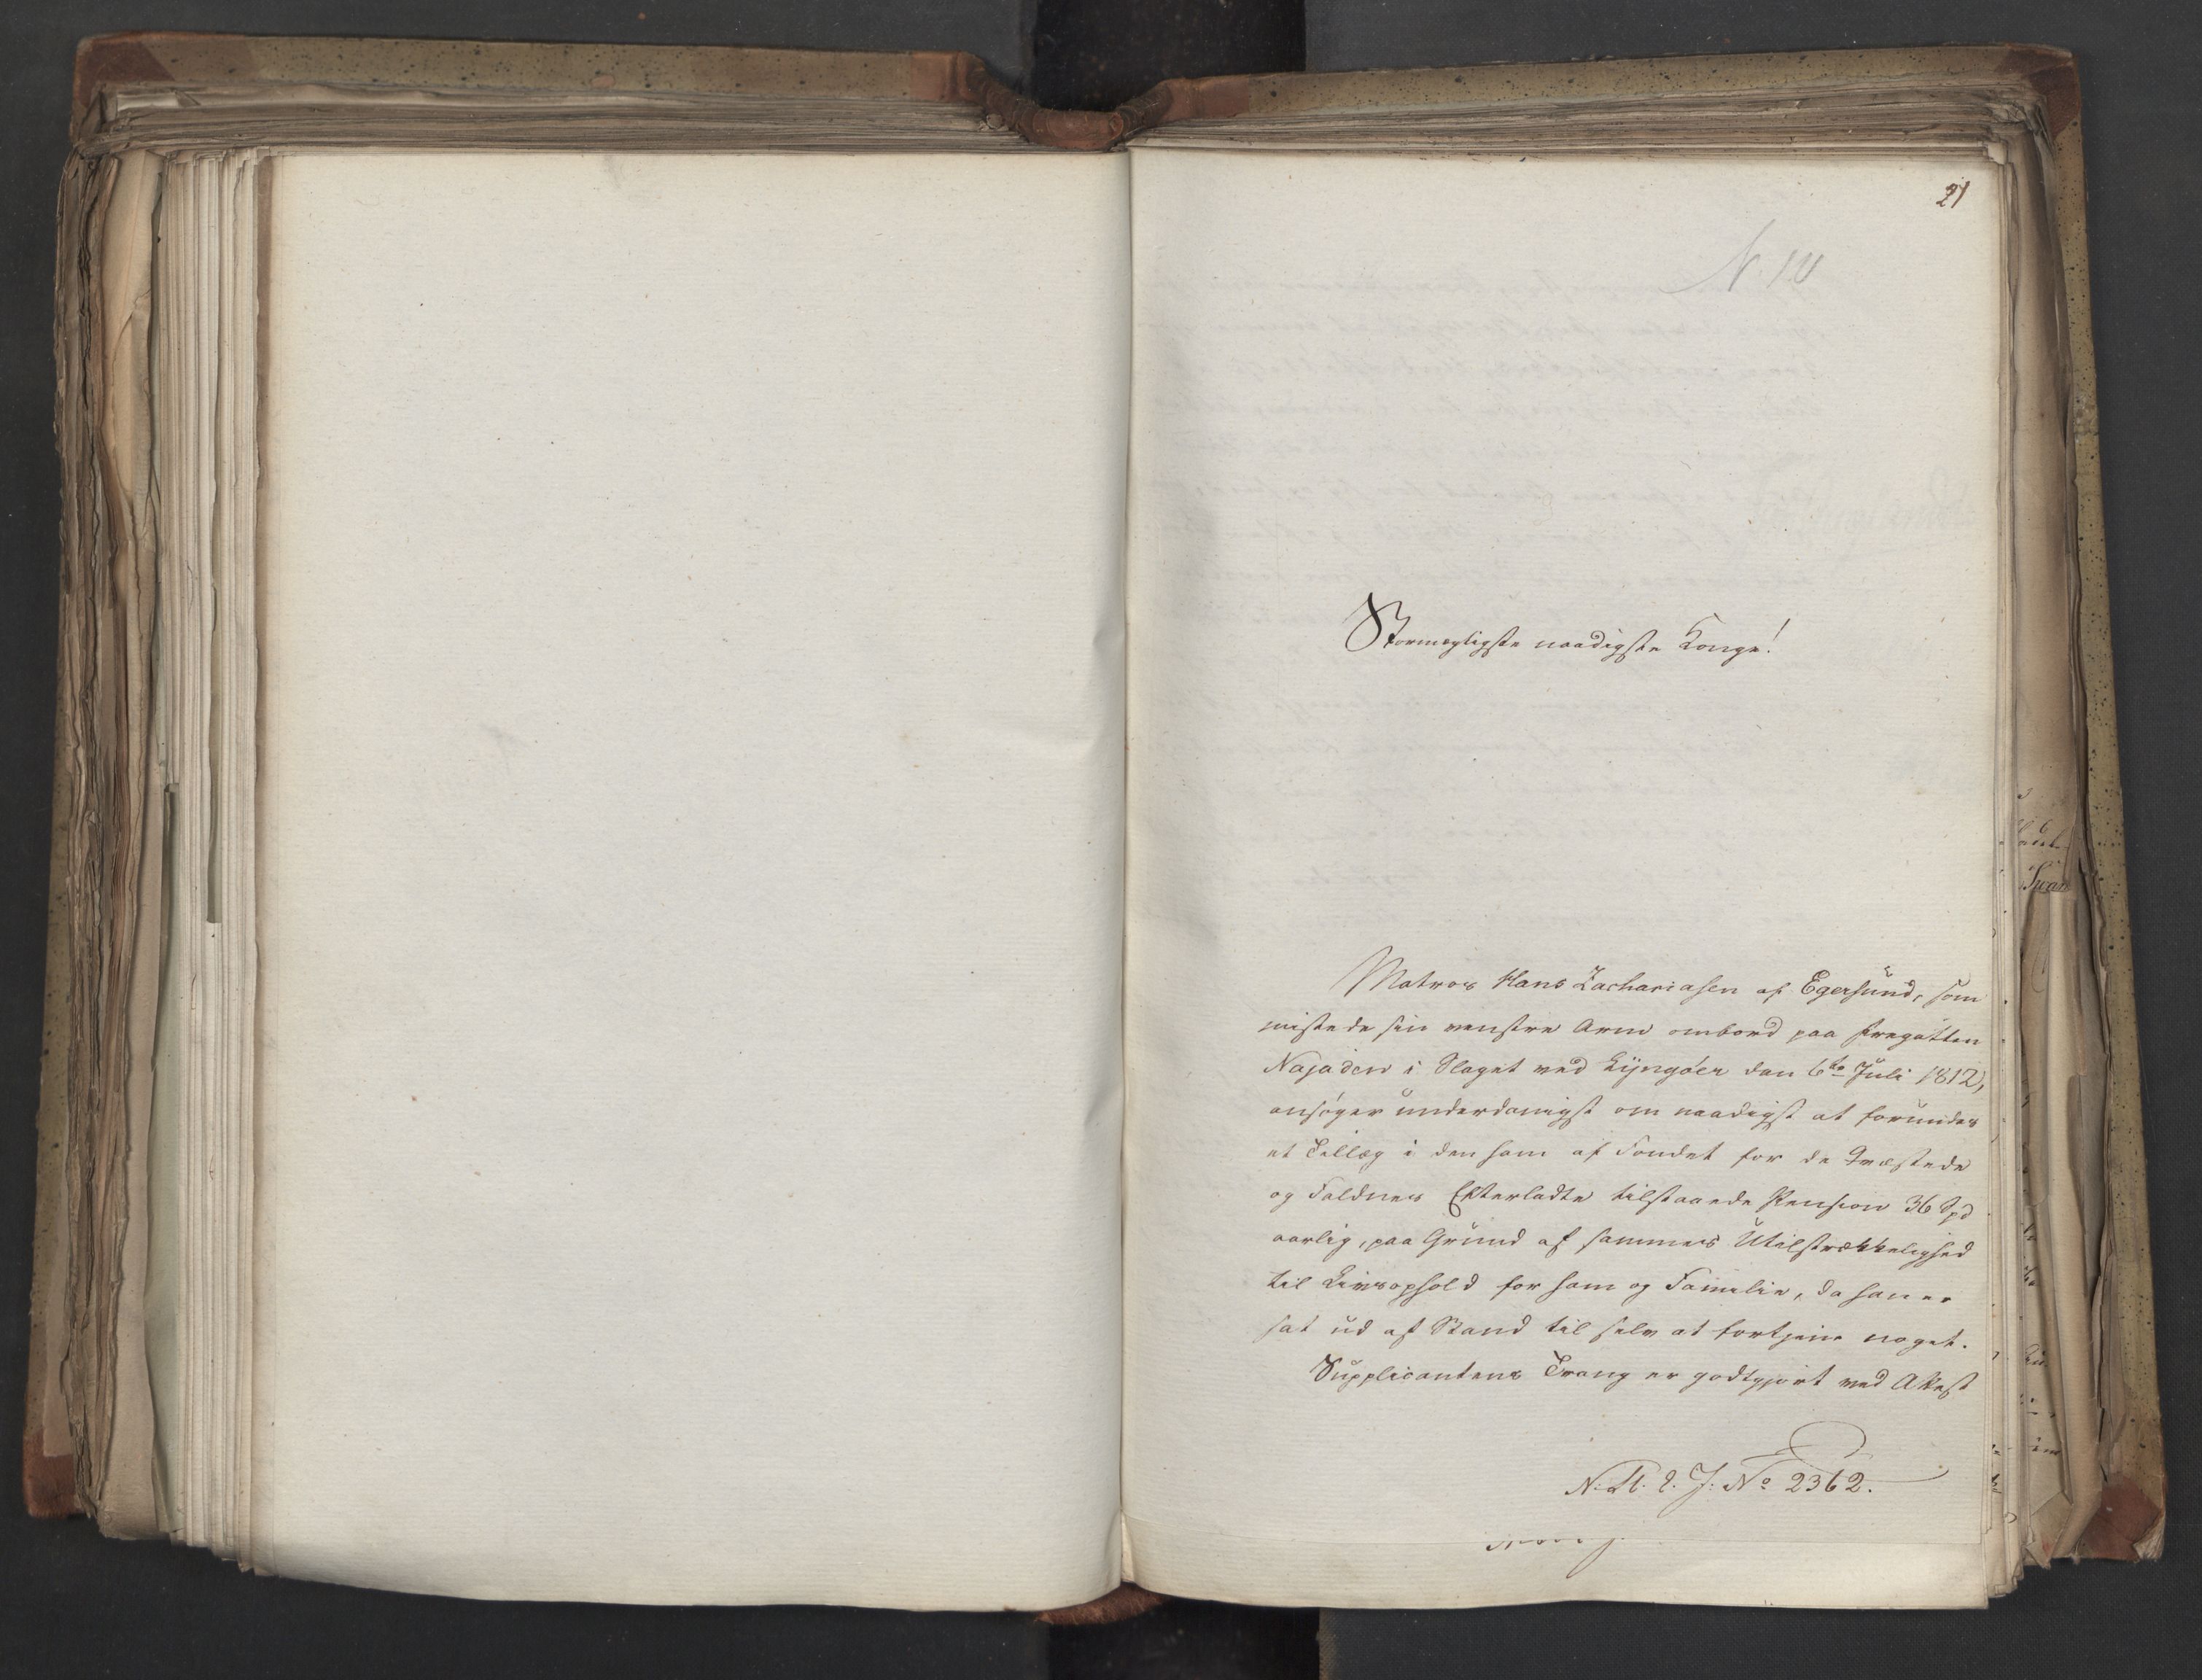 21
N. 10
Stormægtigste naadigste Konge!
Matros Hans Zachariasen af Egersund, som
mistede sin venstre Arm ombord paa Fregatten
Najaden i Slaget ved Lyngøer den 6te Juli 1812,
ansøger underdanigst om naadigst at forundes
et Tillæg i den ham af Fondet for de Qvæstede
og Faldnes Efterladte tilstaaede Pension 36 Spd
aarlig, paa Grund af sammes Utilstrækkelighed
til Livsophold for ham og Familie, da han er
sat ud af Stand til selv at fortjene noget.
Supplicantens Trang er godtgjort ved Attest
N. A. J: No 2362.